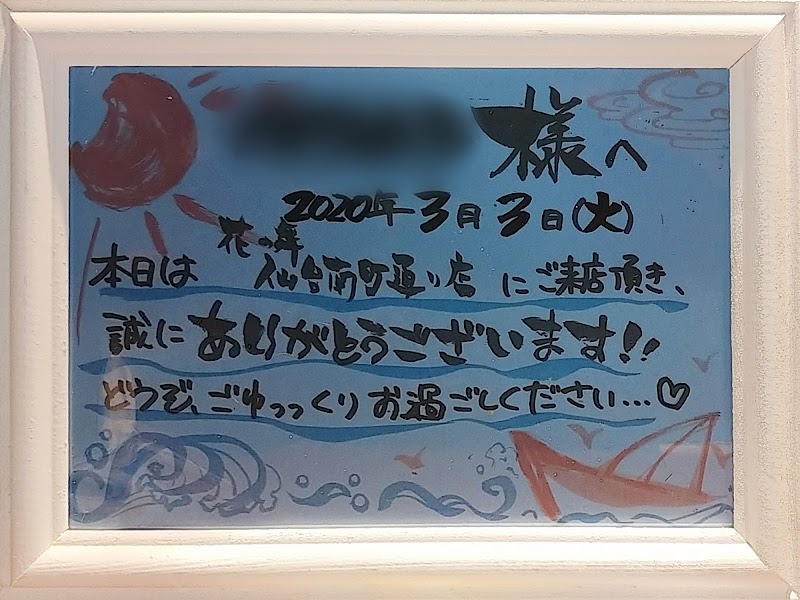 様へ
2020年3月3日(火)
花の舞
本日は 仙台南町通り店 にご来店頂き、
誠に ありがとうございます!!
どうぞ、ごゆっっくり お過ごしください…♡